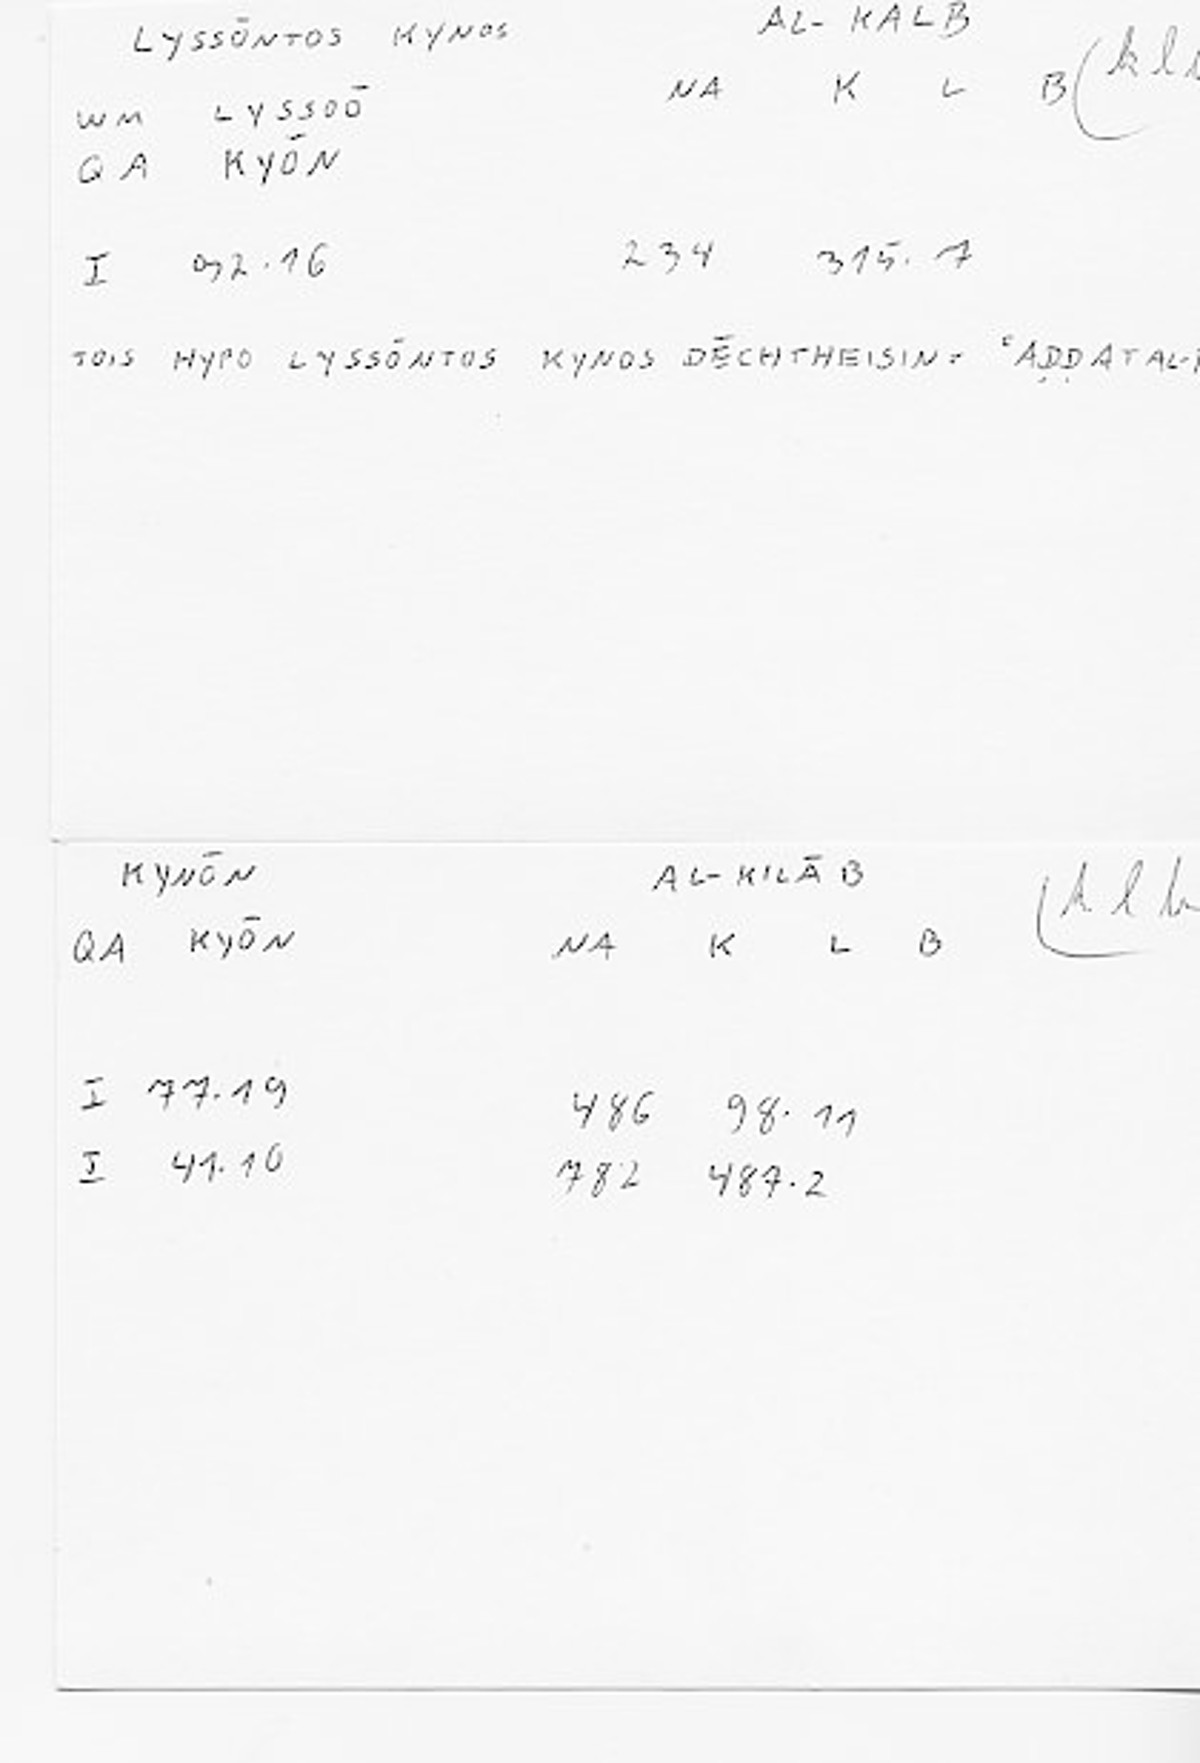 LYSSŌNTOS KYNOS AL-KALB
WM LYSSOŌ NA K L B
QA KYŌN
I 92.16 234 315.7
TOIS HYPO LYSSŌNTOS KYNOS DĒCHTHEISIN = ʿAḌḌATAL-
KYNŌN AL-KILĀB
QA KYŌN NA K L B
I 77.19 486 98.11
I 41.10 782 487.2